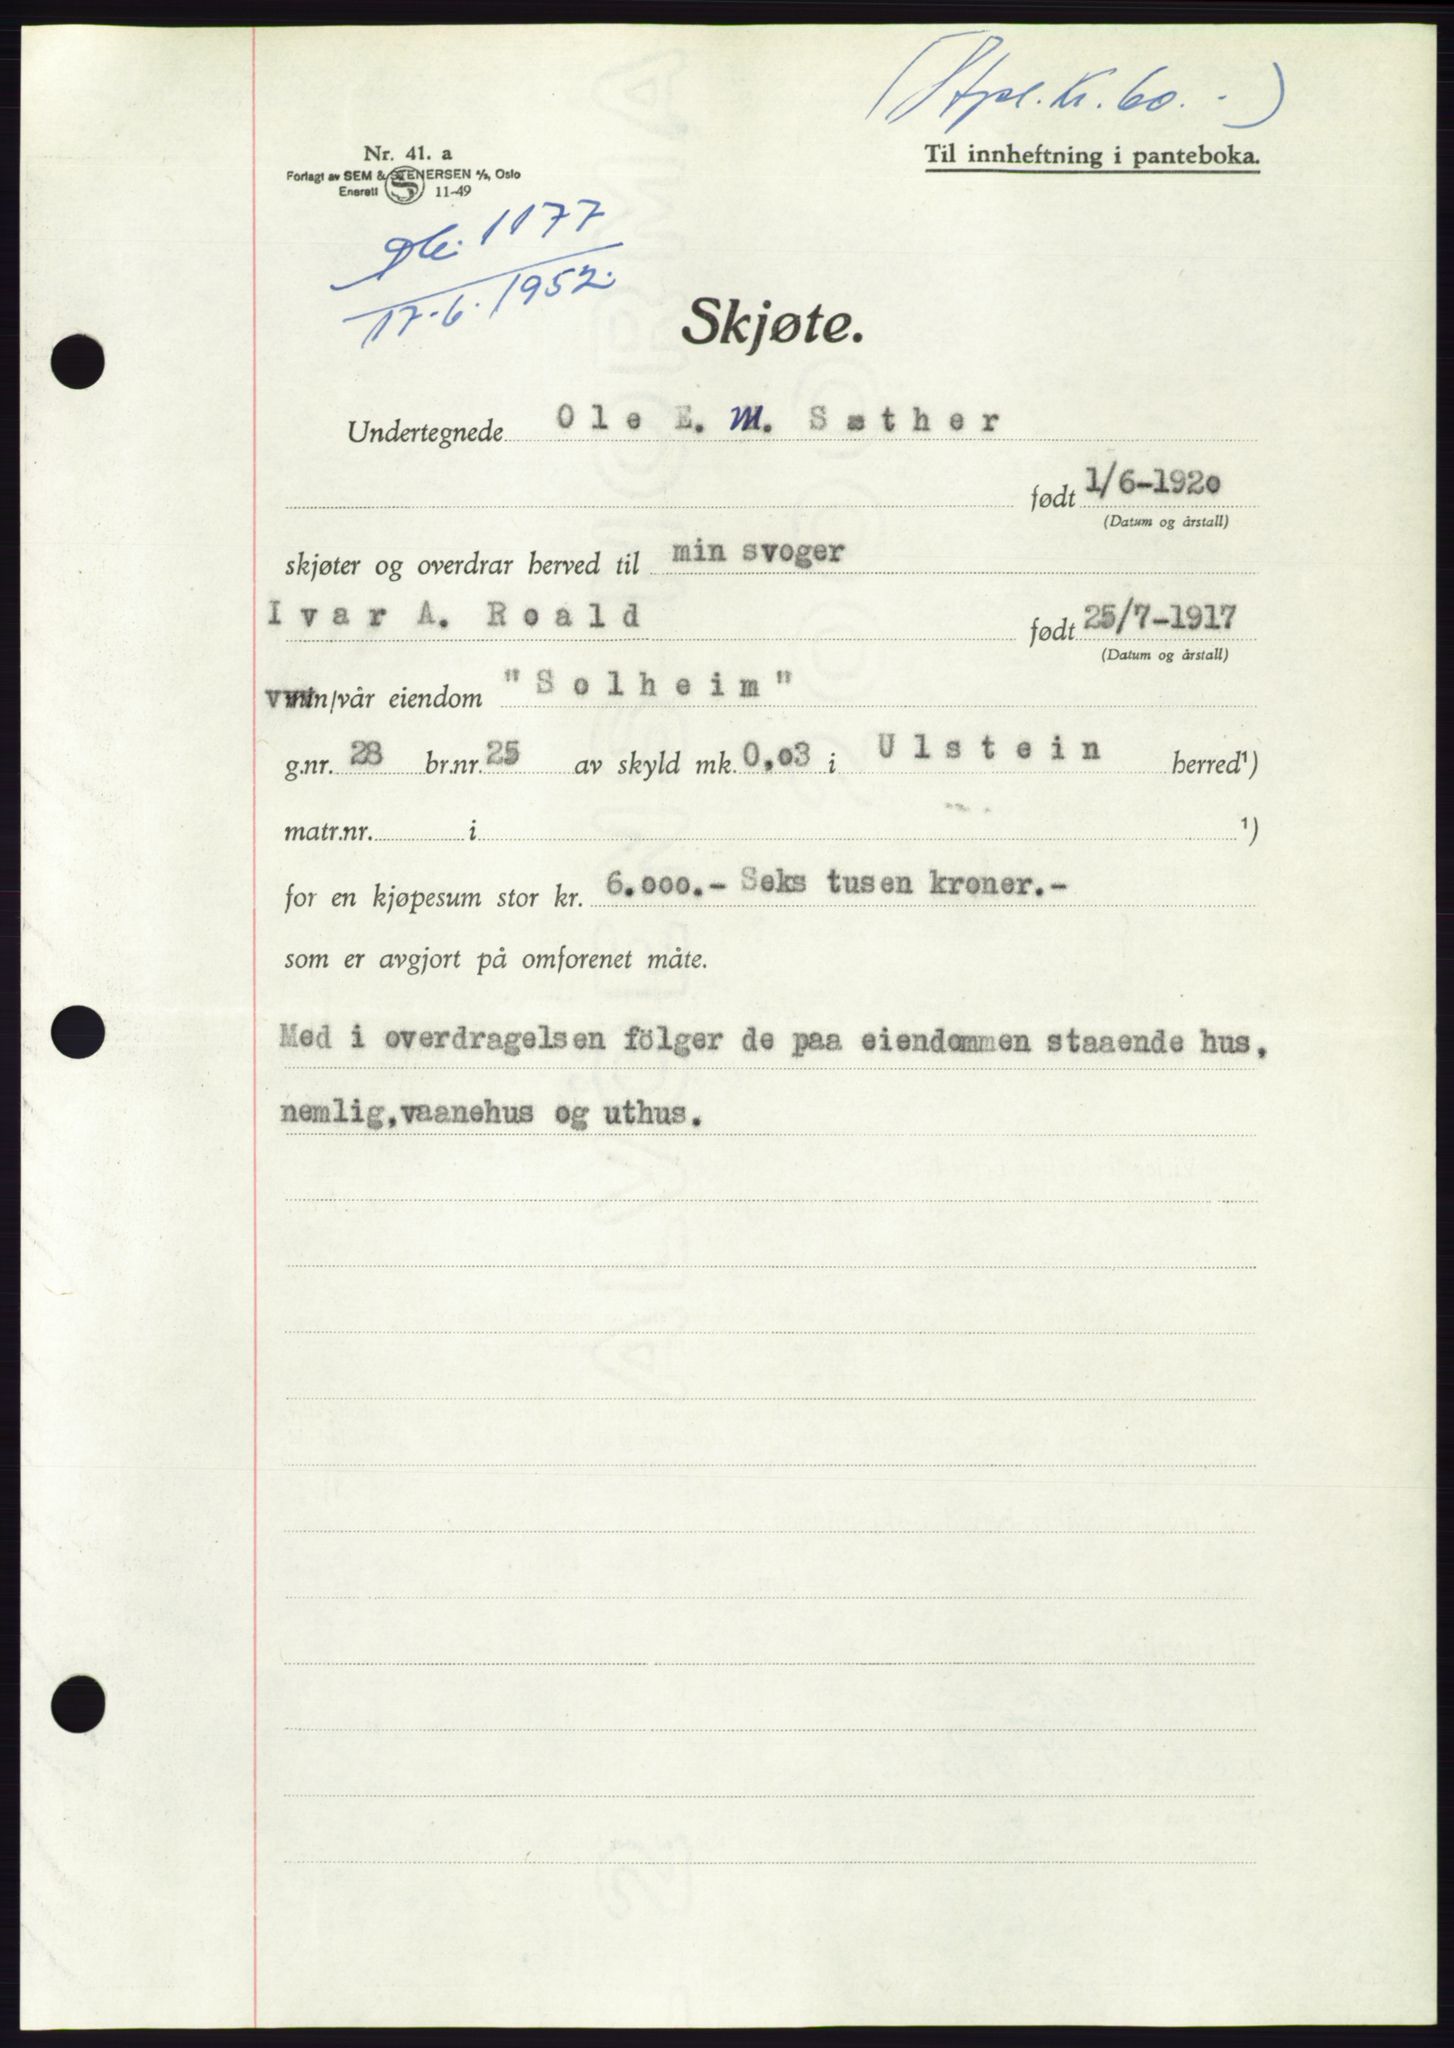 (Stpl. Kr. 60.-)
Nr. 41. a
Til innheftning i panteboka.
Forlagt av SEM & STENERSEN A/S, Oslo
Enerett 11-49
1177
17.6.1952.
Skjøte.
Undertegnede Ole E. M. Sæther
født 1/6-1920
(Datum og årstall)
skjøter og overdrar herved til min svoger
Ivar A. Roald født 25/7-1917
(Datum og årstall)
min/vår eiendom "Solheim"
g.nr. 28 br.nr. 25 av skyld mk. 0,03 i Ulstein herred¹)
matr.nr. i ¹)
for en kjøpesum stor kr. 6.000.- Seks tusen kroner.-
som er avgjort på omforenet måte.
Med i overdragelsen fölger de paa eiendommen staaende hus,
nemlig,vaanehus og uthus.